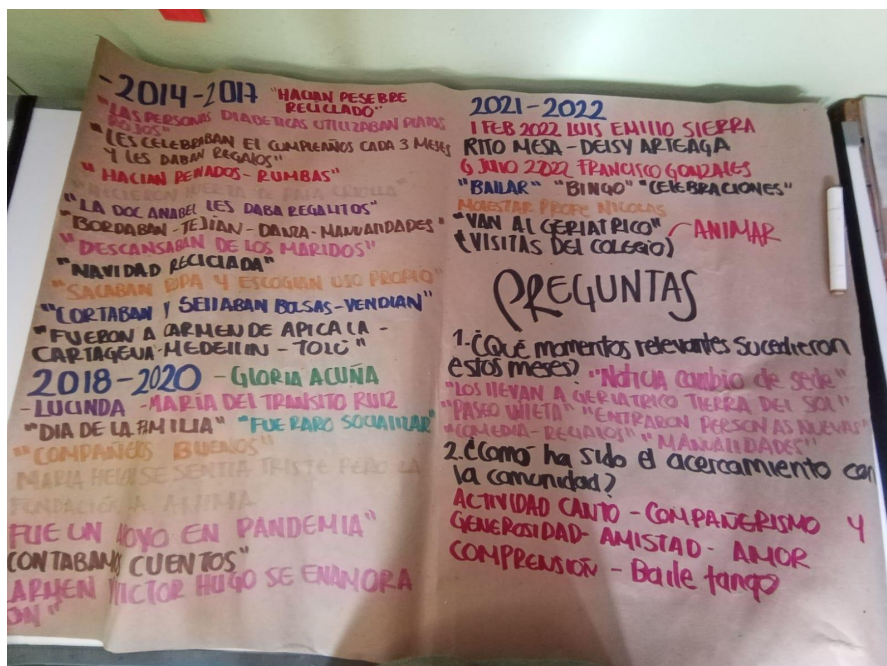 -2014-2017 "HACIAN PESEBRE
RECICLADO"
"LAS PERSONAS DIABETICAS UTILIZABAN PLATOS
ROJOS"
"LES CELEBRABAN EL CUMPLEAÑOS CADA 3 MESES
Y LES DABAN REGALOS"
"HACIAN PEINADOS - RUMBAS"
"HICIERON HUERTA DE PAPA CRIOLLA"
"LA DOC ANABEL LES DABA REGALITOS"
"BORDABAN - TEJIAN - DANZA - MANUALIDADES"
"DESCANSABAN DE LOS MARIDOS"
"NAVIDAD RECICLADA"
"SACABAN ROPA Y ESCOGIAN USO PROPIO"
"CORTABAN Y SELLABAN BOLSAS - VENDIAN"
"FUERON A CARMEN DE APICALA -
CARTAGENA - MEDELLIN - TOLÚ"
2018-2020 - GLORIA ACUÑA
- LUCINDA - MARIA DEL TRANSITO RUIZ
"DIA DE LA FAMILIA" "FUE RARO SOCIALIZAR"
"COMPAÑEROS BUENOS"
MARIA HELE SE SENTIA TRISTE PERO LA
FUNDACION LA ANIMA
FUE UN APOYO EN PANDEMIA"
CONTABAMOS CUENTOS"
ARMEN VICTOR HUGO SE ENAMORA
ON"
2021-2022
1 FEB 2022 LUIS EMILIO SIERRA
RITO MESA - DEISY ARTEAGA
6 JULIO 2222 FRANCISCO GONZALES
"BAILAR" "BINGO" "CELEBRACIONES"
MOLESTAR PROFE NICOLAS
"VAN AL GERIATRICO" - ANIMAR
(VISITAS DEL COLEGIO)
PREGUNTAS
1-¿Qué momentos relevantes sucedieron
estos meses? "Noticia cambio de sede"
"LOS LLEVAN A GERIATRICO TIERRA DEL SOL"
"PASEO VILETA" "ENTRARON PERSONAS NUEVAS"
"COMEDIA - REGALOS" "MANUALIDADES"
2.¿Como ha sido el acercamiento con
la comunidad?
ACTIVIDAD CANTO - COMPAÑERISMO Y
GENEROSIDAD - AMISTAD - AMOR
COMPRENSIÓN - Baile tango